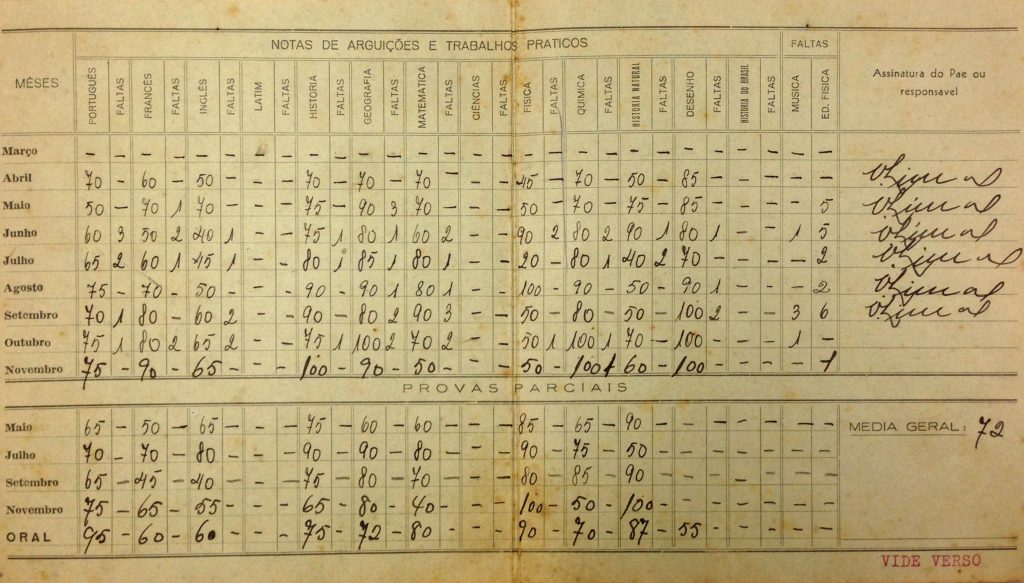 NOTAS DE ARGUIÇÕES E TRABALHOS PRATICOS FALTAS
MÊSES PORTUGUÊS FALTAS FRANCÊS FALTAS INGLÊS FALTAS LATIM FALTAS HISTORIA FALTAS GEOGRAFIA FALTAS MATEMATICA FALTAS CIÊNCIAS FALTAS FISICA FALTAS QUIMICA FALTAS HISTORIA NATURAL FALTAS DESENHO FALTAS HISTORIA DO BRASIL FALTAS MUSICA ED. FISICA Assinatura do Pae ou
responsavel
Março – – – – – – – – – – – – – – – – – – – – – – – – – – – –
Abril 70 – 60 – 50 – – – 70 – 70 – 70 – – – 45 – 70 – 50 – 85 – – – – –
Maio 50 – 70 1 70 – – – 75 – 90 3 70 – – – 50 – 70 – 75 – 85 – – – – 5
Junho 60 3 50 2 40 1 – – 75 1 80 1 60 2 – – 90 2 80 2 90 1 80 1 – – 1 5
Julho 65 2 60 1 45 1 – – 80 1 85 1 80 1 – – 20 – 80 1 40 2 70 – – – – 2
Agosto 75 – 70 – 50 – – – 90 – 90 1 80 1 – – 100 – 90 – 50 – 90 1 – – – 2
Setembro 70 1 80 – 60 2 – – 90 – 80 2 90 3 – – 50 – 80 – 50 – 100 2 – – 3 6
Outubro 75 1 80 2 65 2 – – 75 1 100 2 70 2 – – 50 1 100 1 70 – 100 – – – 1 –
Novembro 75 – 90 – 65 – – – 100 – 90 – 50 – – – 50 – 100 1 60 – 100 – – – – 1
PROVAS PARCIAIS
Maio 65 – 50 – 65 – – – 75 – 60 – 60 – – – 85 – 65 – 90 – – – – – – – MEDIA GERAL: 72
Julho 70 – 70 – 80 – – – 90 – 90 – 80 – – – 90 – 75 – 50 – – – – – – –
Setembro 65 – 45 – 40 – – – 75 – 80 – 70 – – – 80 – 85 – 90 – – – – – – –
Novembro 75 – 65 – 55 – – – 65 – 80 – 40 – – – 100 – 50 – 100 – – – – – – –
ORAL 95 – 60 – 60 – – – 75 – 72 – 80 – – – 90 – 70 – 87 – 55 – – – – –
VIDE VERSO